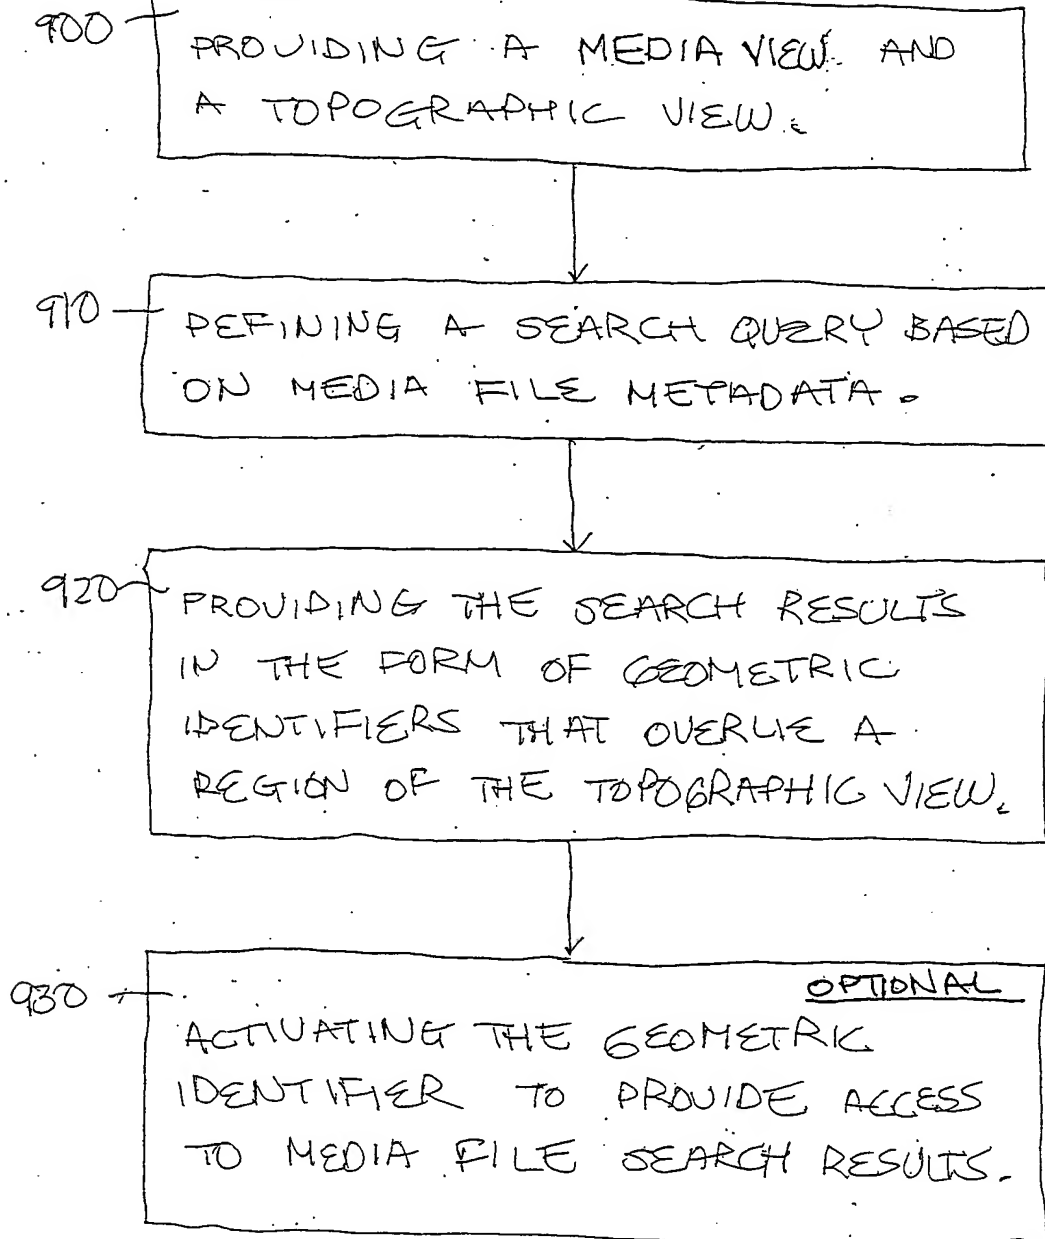 900
PROVIDING A MEDIA VIEW AND
A TOPOGRAPHIC VIEW.
910
DEFINING A SEARCH QUERY BASED
ON MEDIA FILE METADATA.
920
PROVIDING THE SEARCH RESULTS
IN THE FORM OF GEOMETRIC
IDENTIFIERS THAT OVERLIE A
REGION OF THE TOPOGRAPHIC VIEW.
930
OPTIONAL
ACTIVATING THE GEOMETRIC
IDENTIFIER TO PROVIDE ACCESS
TO MEDIA FILE SEARCH RESULTS.